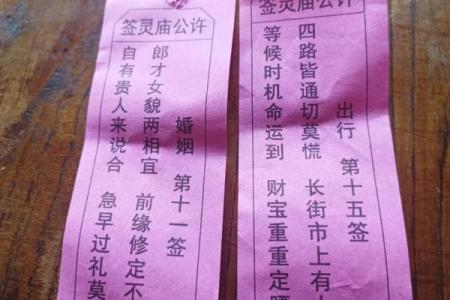 许公庙灵签
婚姻 第十一签
郎才女貌两相宜 前缘修定不
自有贵人来说合 急早过礼莫
许公庙灵签
出行 第十五签
四路皆通切莫慌 长街市上有
等候时机命运到 财宝重重定